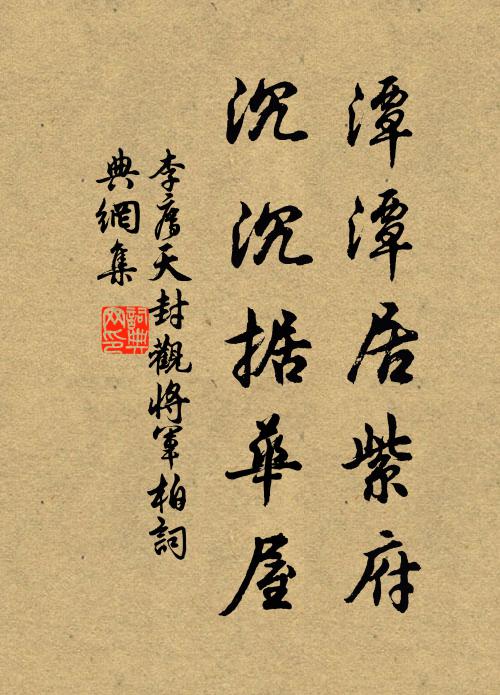 潭潭居紫府
沉沉据華屋
李廌天封觀將軍柏詞
典網集
詞典網印